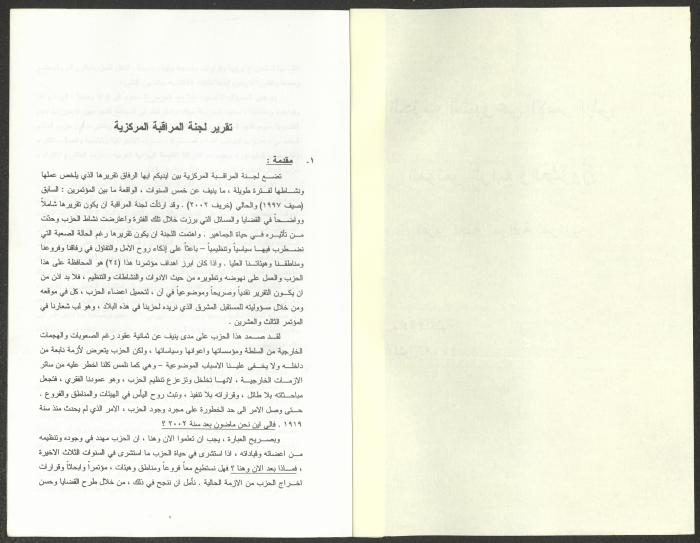 تقرير لجنة المراقبة المركزية
١. مقدمة :
تضع لجنة المراقبة المركزية بين ايديكم ايها الرفاق تقريرها الذي يلخص عملها
ونشاطها لفترة طويلة ، ما ينيف عن خمس السنوات ، الواقعة ما بين المؤتمرين : السابق
(صيف ١٩٩٧) والحالي (خريف ٢٠٠٢) . وقد ارتأت لجنة المراقبة ان يكون تقريرها شاملاً
وواضحاً في القضايا والمسائل التي برزت خلال تلك الفترة واعترضت نشاط الحزب وحدّت
من تأثيره في حياة الجماهير . واهتمت اللجنة ان يكون تقريرها رغم الحالة الصعبة التي
نضطرب فيها سياسياً وتنظيمياً – باعثاً على إذكاء روح الامل والتفاؤل في رفاقنا وفروعنا
ومناطقنا وهيئاتنا العليا . واذا كان ابرز اهداف مؤتمرنا هذا (٢٤) هو المحافظة على هذا
الحزب والعمل على نهوضه وتطويره من حيث الادوات والنشاطات والتنظيم ، فلا بد اذن من
ان يكون التقرير نقدياً وصريحاً وموضوعياً في آن ، لتحميل اعضاء الحزب ، كل في موقعه
ومن خلال مسؤوليته للمستقبل المشرق الذي نريده لحزبنا في هذه البلاد ، وهو لب شعارنا في
المؤتمر الثالث والعشرين .
لقد صمد هذا الحزب على مدى ينيف عن ثمانية عقود رغم الصعوبات والهجمات
الخارجية من السلطة ومؤسساتها واعوانها وسياساتها ، ولكن الحزب يتعرض لأزمة نابعة من
داخله ولا يخفى علينا الاسباب الموضوعية – وهي كما نلمس كلنا اخطر عليه من سائر
الازمات الخارجية ، لانها تخلخل وتزعزع تنظيم الحزب ، وهو عمودنا الفقري ، فتجعل
مباحثاته بلا طائل ، وقراراته بلا تنفيذ ، وتبث روح اليأس في الهيئات والمناطق والفروع .
حتى وصل الامر الى حد الخطورة على مجرد وجود الحزب ، الامر الذي لم يحدث منذ سنة
١٩١٩ . فالى اين نحن ماضون بعد سنة ٢٠٠٢ ؟
وبصريح العبارة ، يجب ان تعلموا الان وهنا ، ان الحزب مهدد في وجوده وتنظيمه
من اعضائه وقياداته ، اذا استشرى في حياة الحزب ما استشرى في السنوات الثلاث الاخيرة
، فماذا بعد الان وهنا ؟ فهل نستطيع معاً فروعاً ومناطق وهيئات ، مؤتمراً وابحاثاً وقرارات
اخراج الحزب من الازمة الحالية . نأمل ان ننجح في ذلك ، من خلال طرح القضايا وحسن